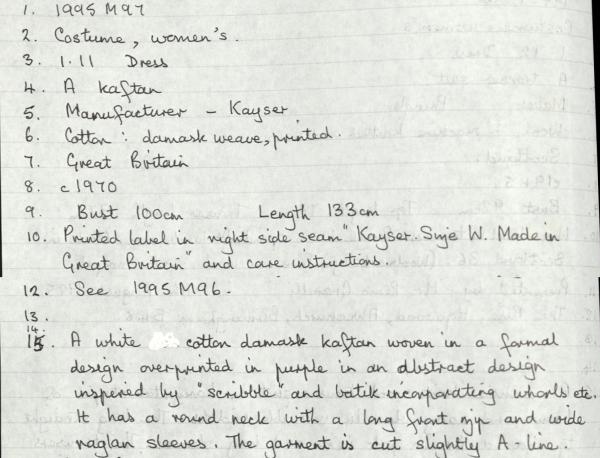 1. 1995 M97
2. Costume, women's.
3. 1.11 Dress
4. A kaftan
5. Manufacturer - Kayser
6. Cotton : damask weave, printed.
7. Great Britain
8. c1970
9. Bust 100cm Length 133cm
10. Printed label in right side seam "Kayser. Size W. Made in
Great Britain" and care instructions.
12. See 1995 M96.
13.
14.
15. A white cotton damask kaftan woven in a formal
design overprinted in purple in an abstract design
inspired by "scribble" and batik incorporating whorls etc.
It has a round neck with a long front zip and wide
raglan sleeves. The garment is cut slightly A-line.